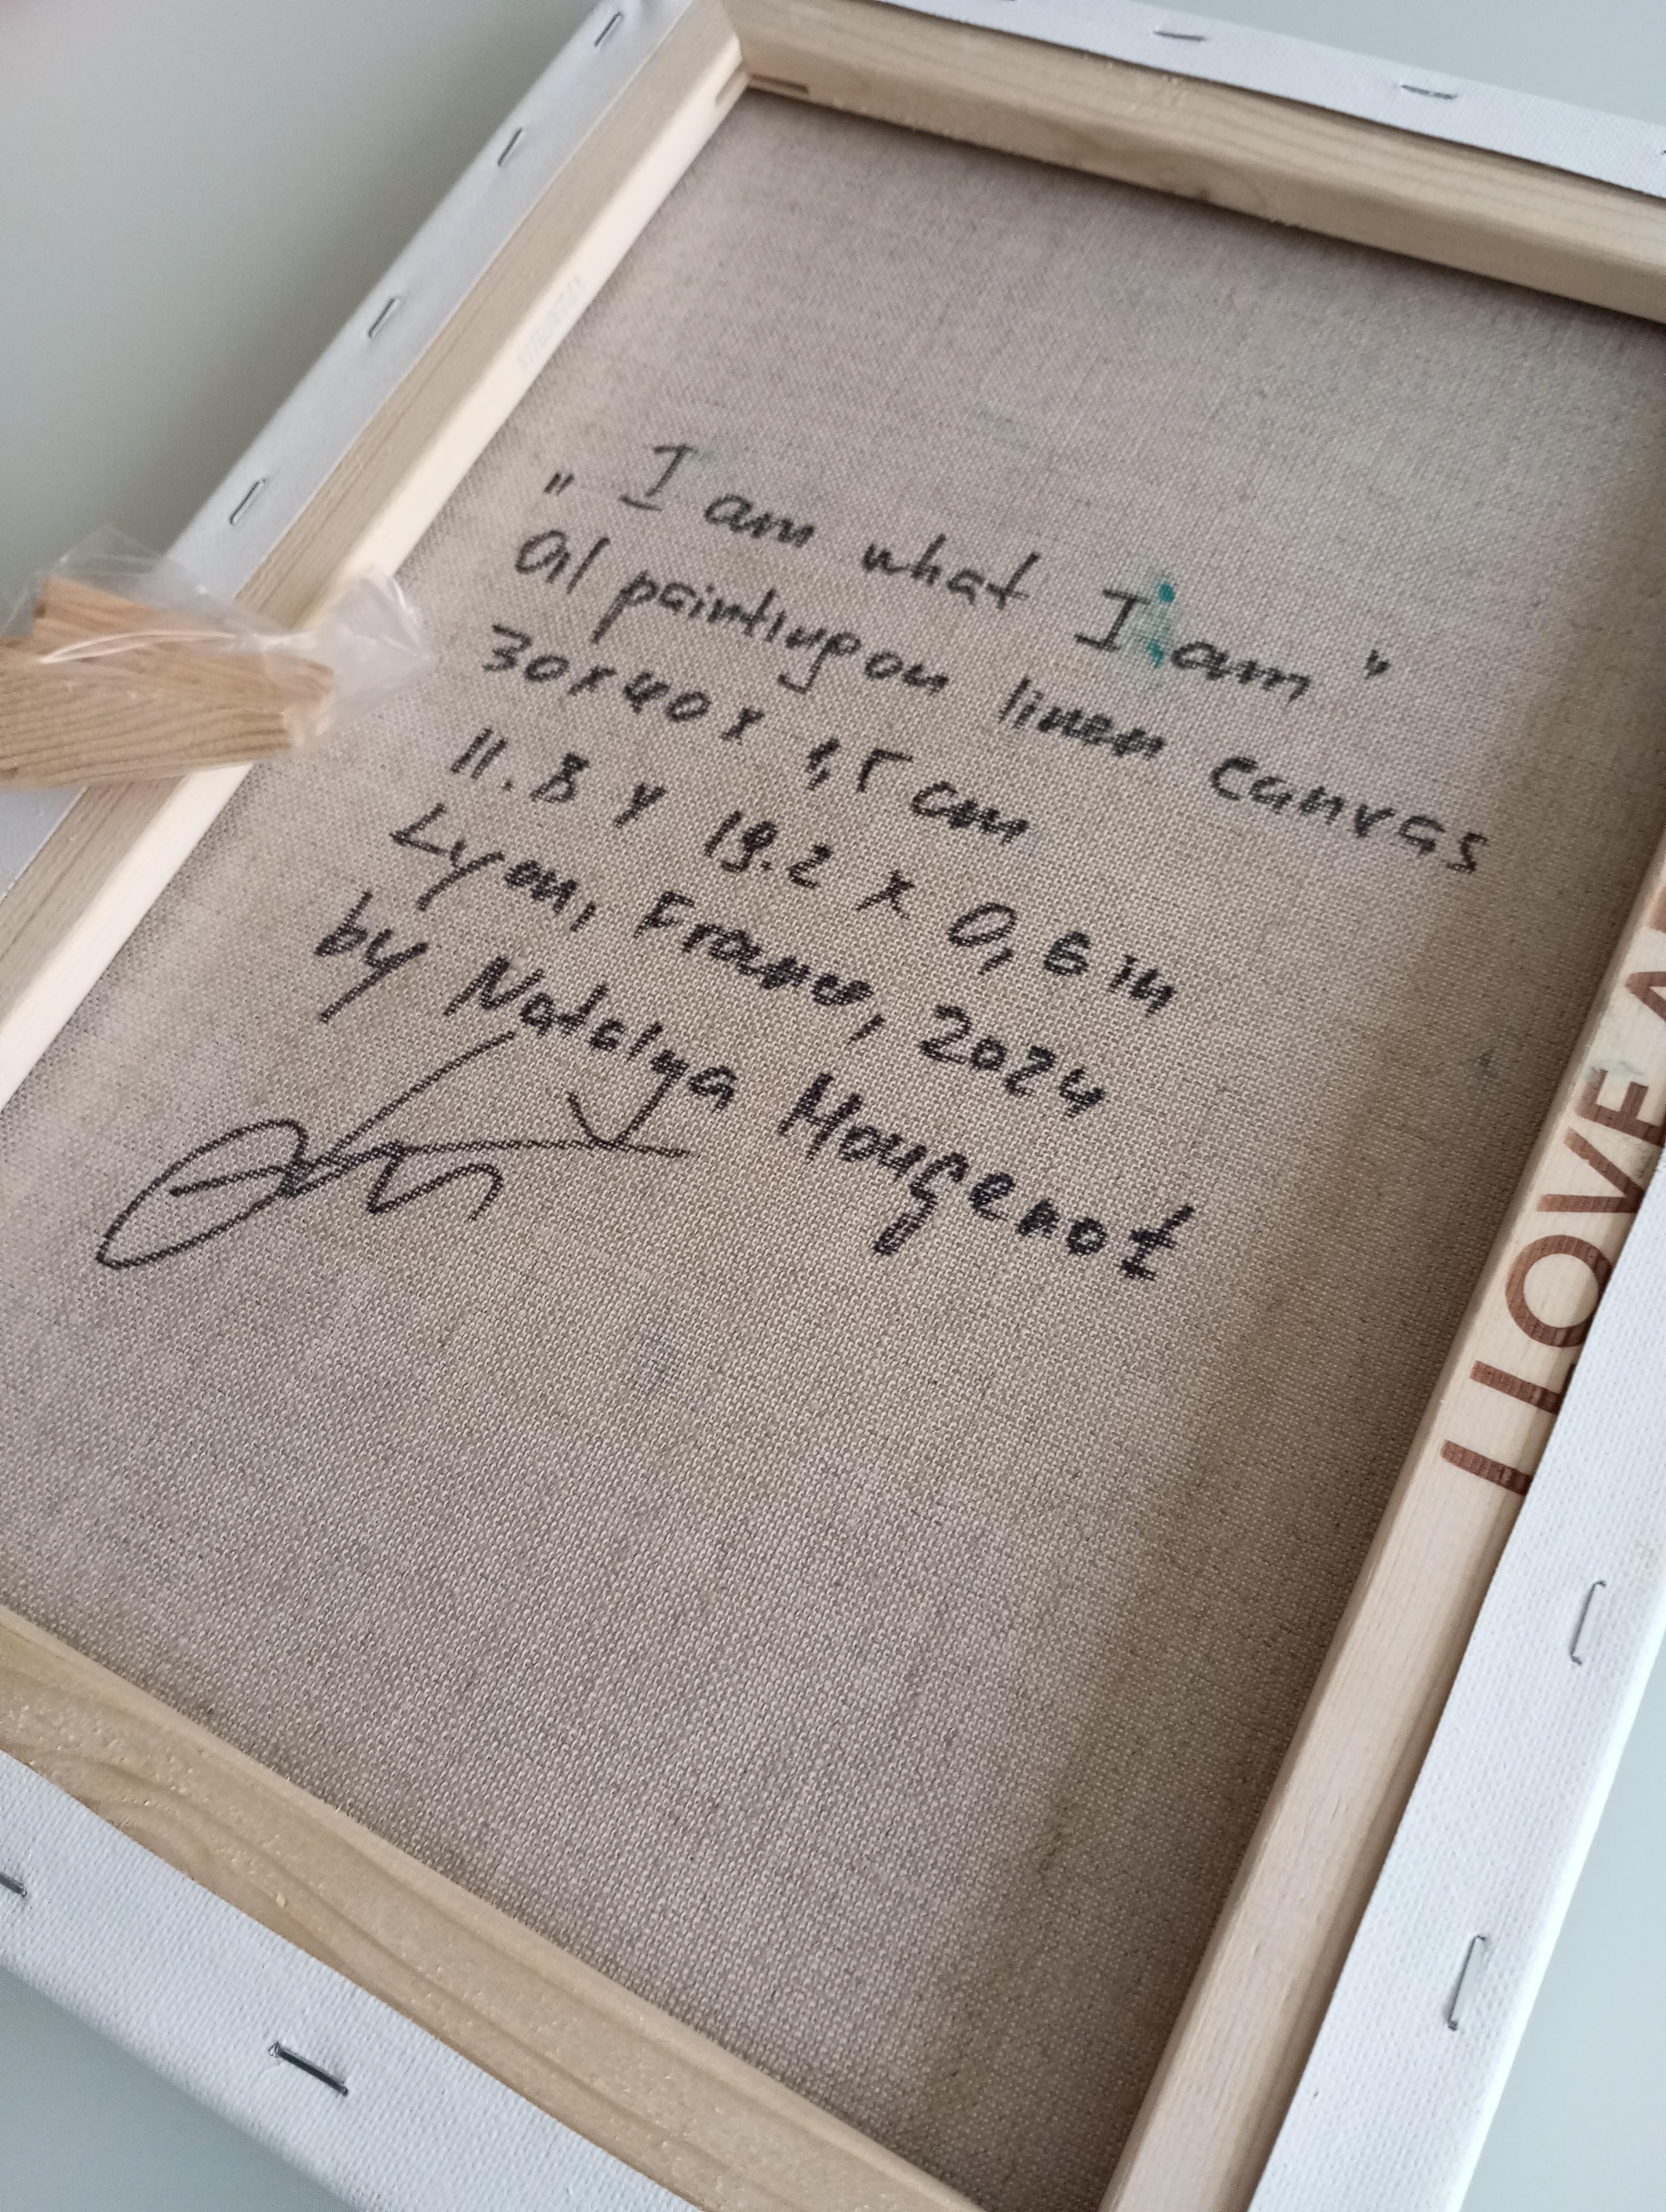 " I am what I am "
Oil painting on linen canvas
30x40x 1,5 cm
11.8 x 19.2 x 0,6 in
Lyon, France, 2024
by Natalya Mougenot
I LOVE A